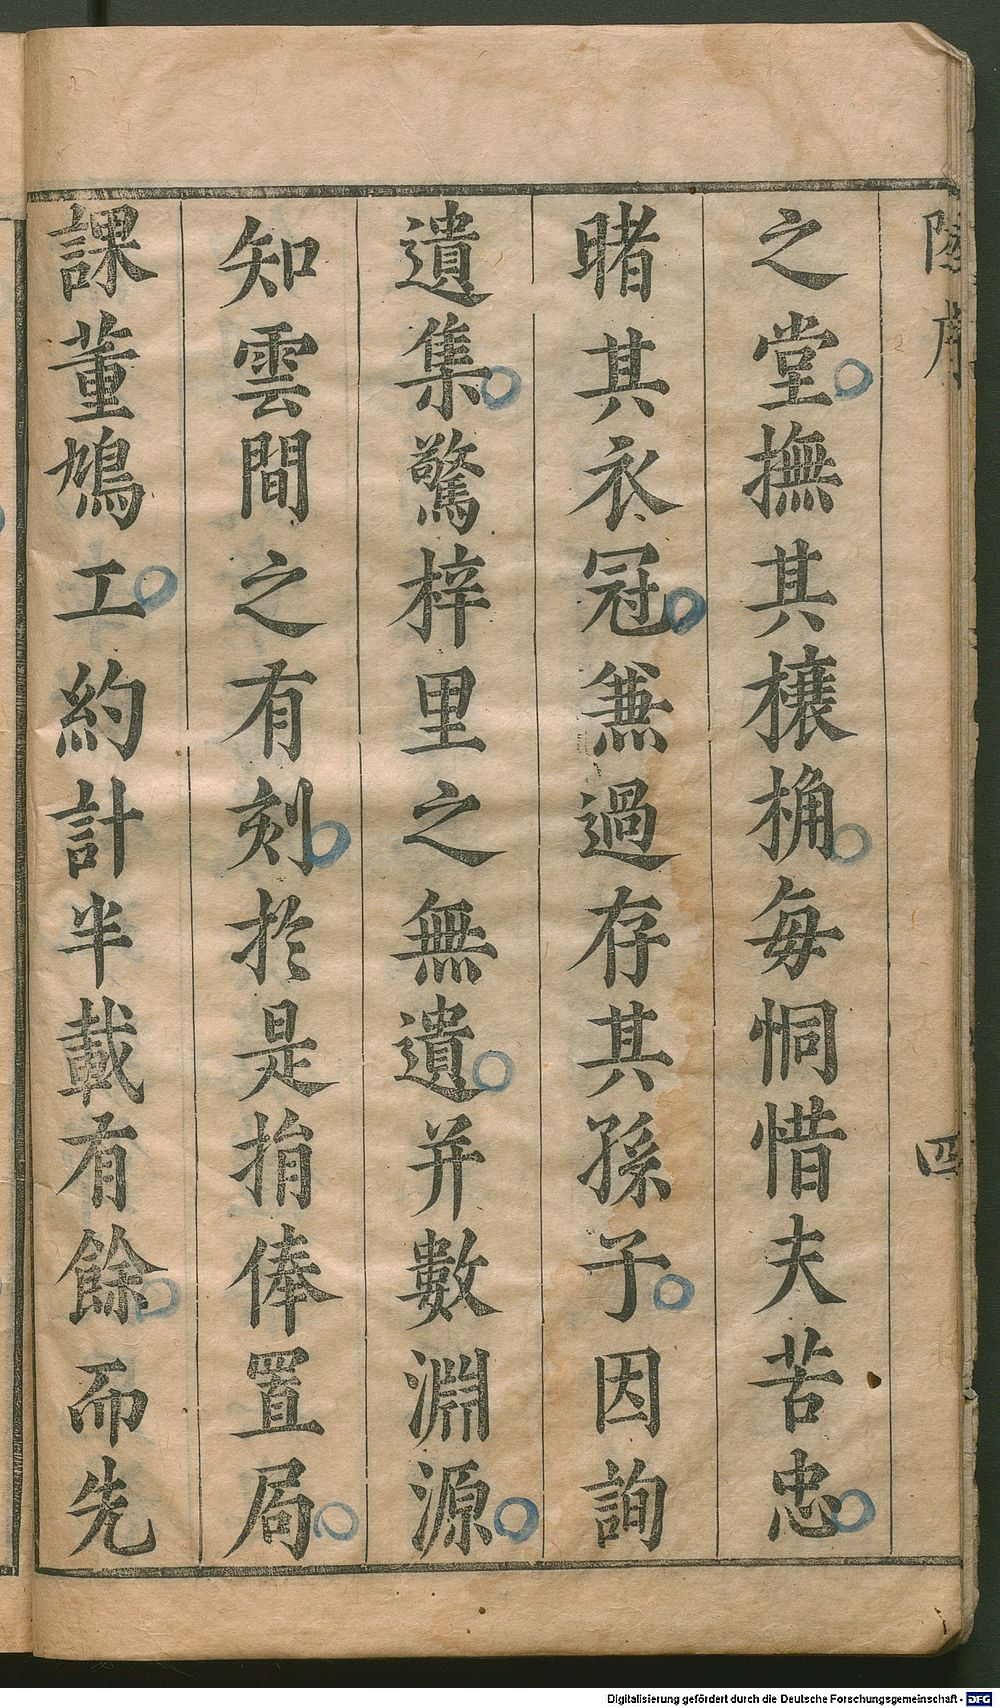 之堂撫其榱桷每恫惜夫苦忠
睹其衣冠兼過存其孫子因詢
遺集驚梓里之無遺并數淵源
知雲間之有刻於是捐俸置局
課董鳩工約計半載有餘而先
序
四
Digitalisierung gefördert durch die Deutsche Forschungsgemeinschaft - DFG